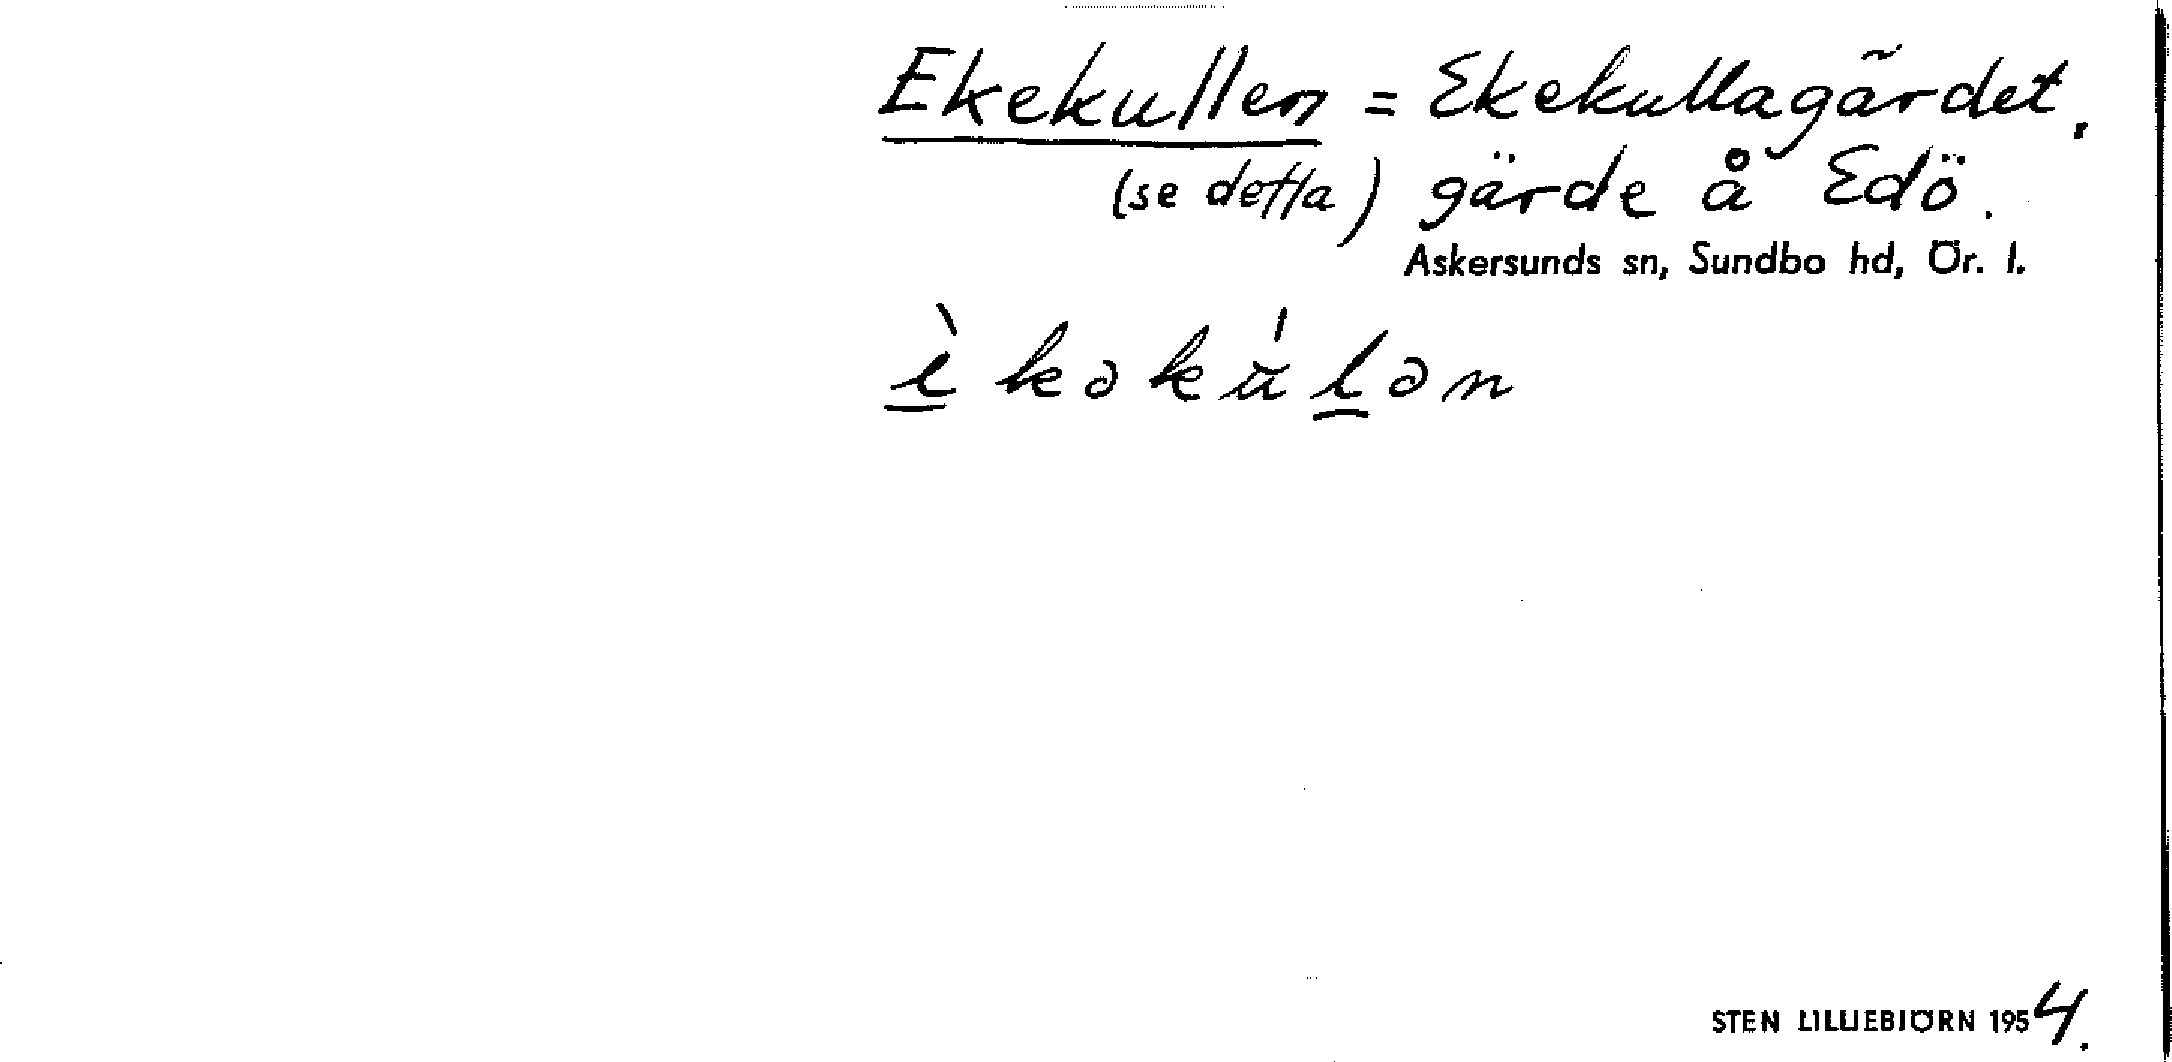 Ekekullen = Ekekullagärdet,
(se detta) gärde å Edö.
Askersunds sn, Sundbo hd, Ör. l.
è̱kəkúḻən
STEN LILLIEBJÖRN 1954.